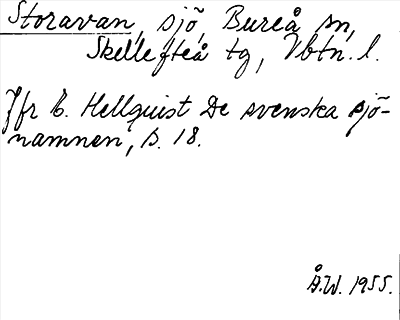 Storavan, sjö, Bureå sn,
Skellefteå tg, Vbtn. l.
Jfr E. Hellquist De svenska sjö-
namnen, s. 18.
Å.W. 1955.